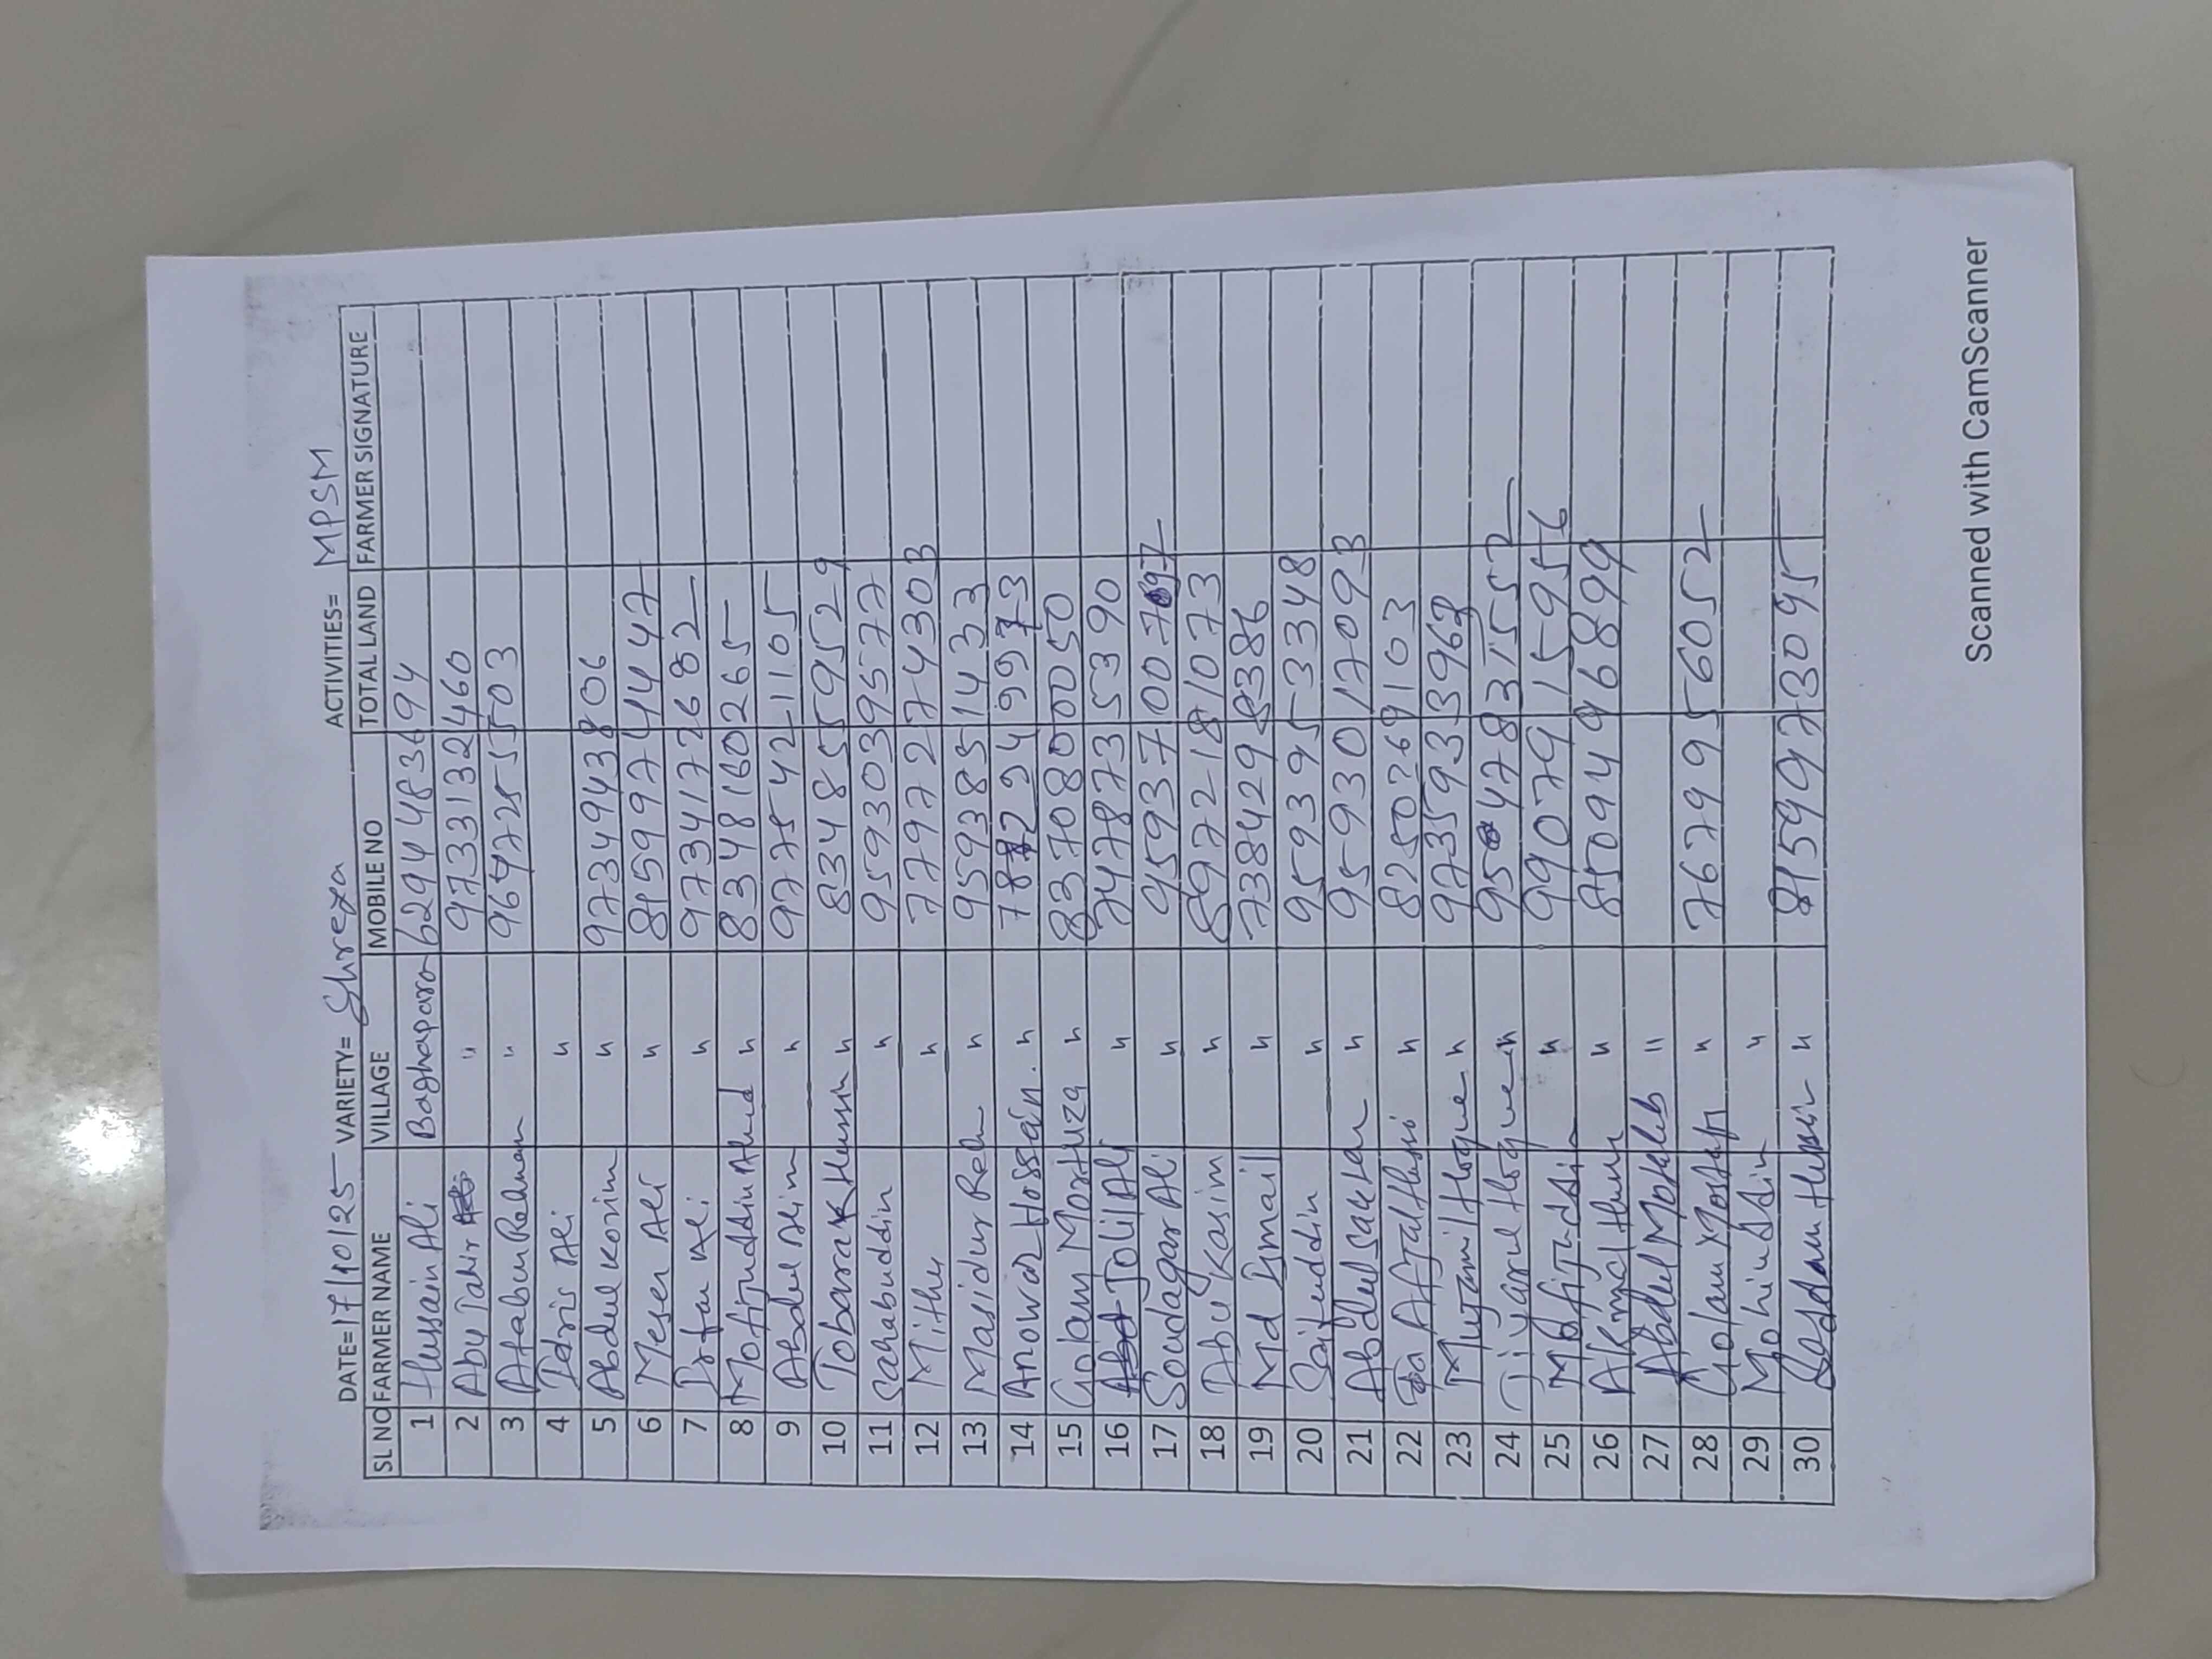 DATE=17/10/25 VARIETY= Shrexa ACTIVITIES= MPSM
SL NO FARMER NAME VILLAGE MOBILE NO TOTAL LAND FARMER SIGNATURE
1 Hussain Ali Baghapara 6294483694
2 Abu Tahir " 9733132460
3 AtaburRehman " 9647255503
4 Idris Ali "
5 Abdul Korim " 9734943806
6 Meser Ali " 8159974447
7 Irfan Ali " 9734172682
8 Mofijuddin Ahmd " 8348160265
9 Abdul Alim " 9775421105
10 Tobarak Hussin " 8348559529
11 Sahabuddin " 9593039577
12 Mithu " 7797274303
13 Masidur Reh " 9593851433
14 Anowar Hossan. "
15 Golam Mortuza " 8370800050
16 Jolil Ali " 7478735390
17 Soudagar Ali "
18 Abu Kasim " 8972181073
19 Md Ismail " 7384298386
20 Saifuddin " 9593953348
21 Abdul Sattar " 9593017093
22 "
23 Mujamil Hoque " 9735933968
24 Jiyarul Hoque "
25 Mofijuddin " 9907915956
26 " 8509496899
27 Abdul Motaleb "
28 Golam Mostafa " 7679956052
29 Mohiuddin "
30 Saddam Hussin " 8159973095
Scanned with CamScanner